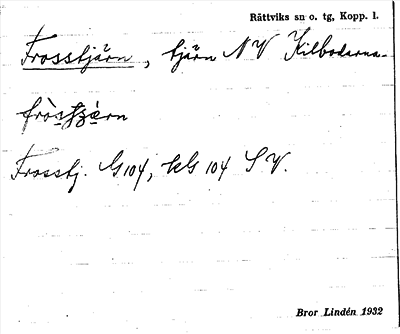 Rättviks sn o. tg, Kopp. l.
Frosstjärn, tjärn NV Kilbodarna.
Frosstj. G104, kG 104 SV.
Bror Lindén 1932